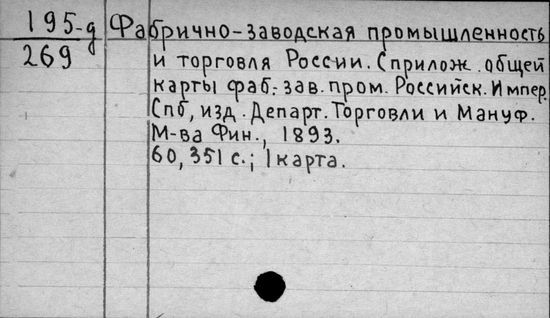 195-д Фабрично-заводская промышленность
269 и торговля России. С прилож. общей
карты фаб.-зав. пром. Российск. Импер.
Спб, изд. Департ. Торговли и Мануф.
М-ва Фин., 1893.
60, 351 с.; 1 карта.